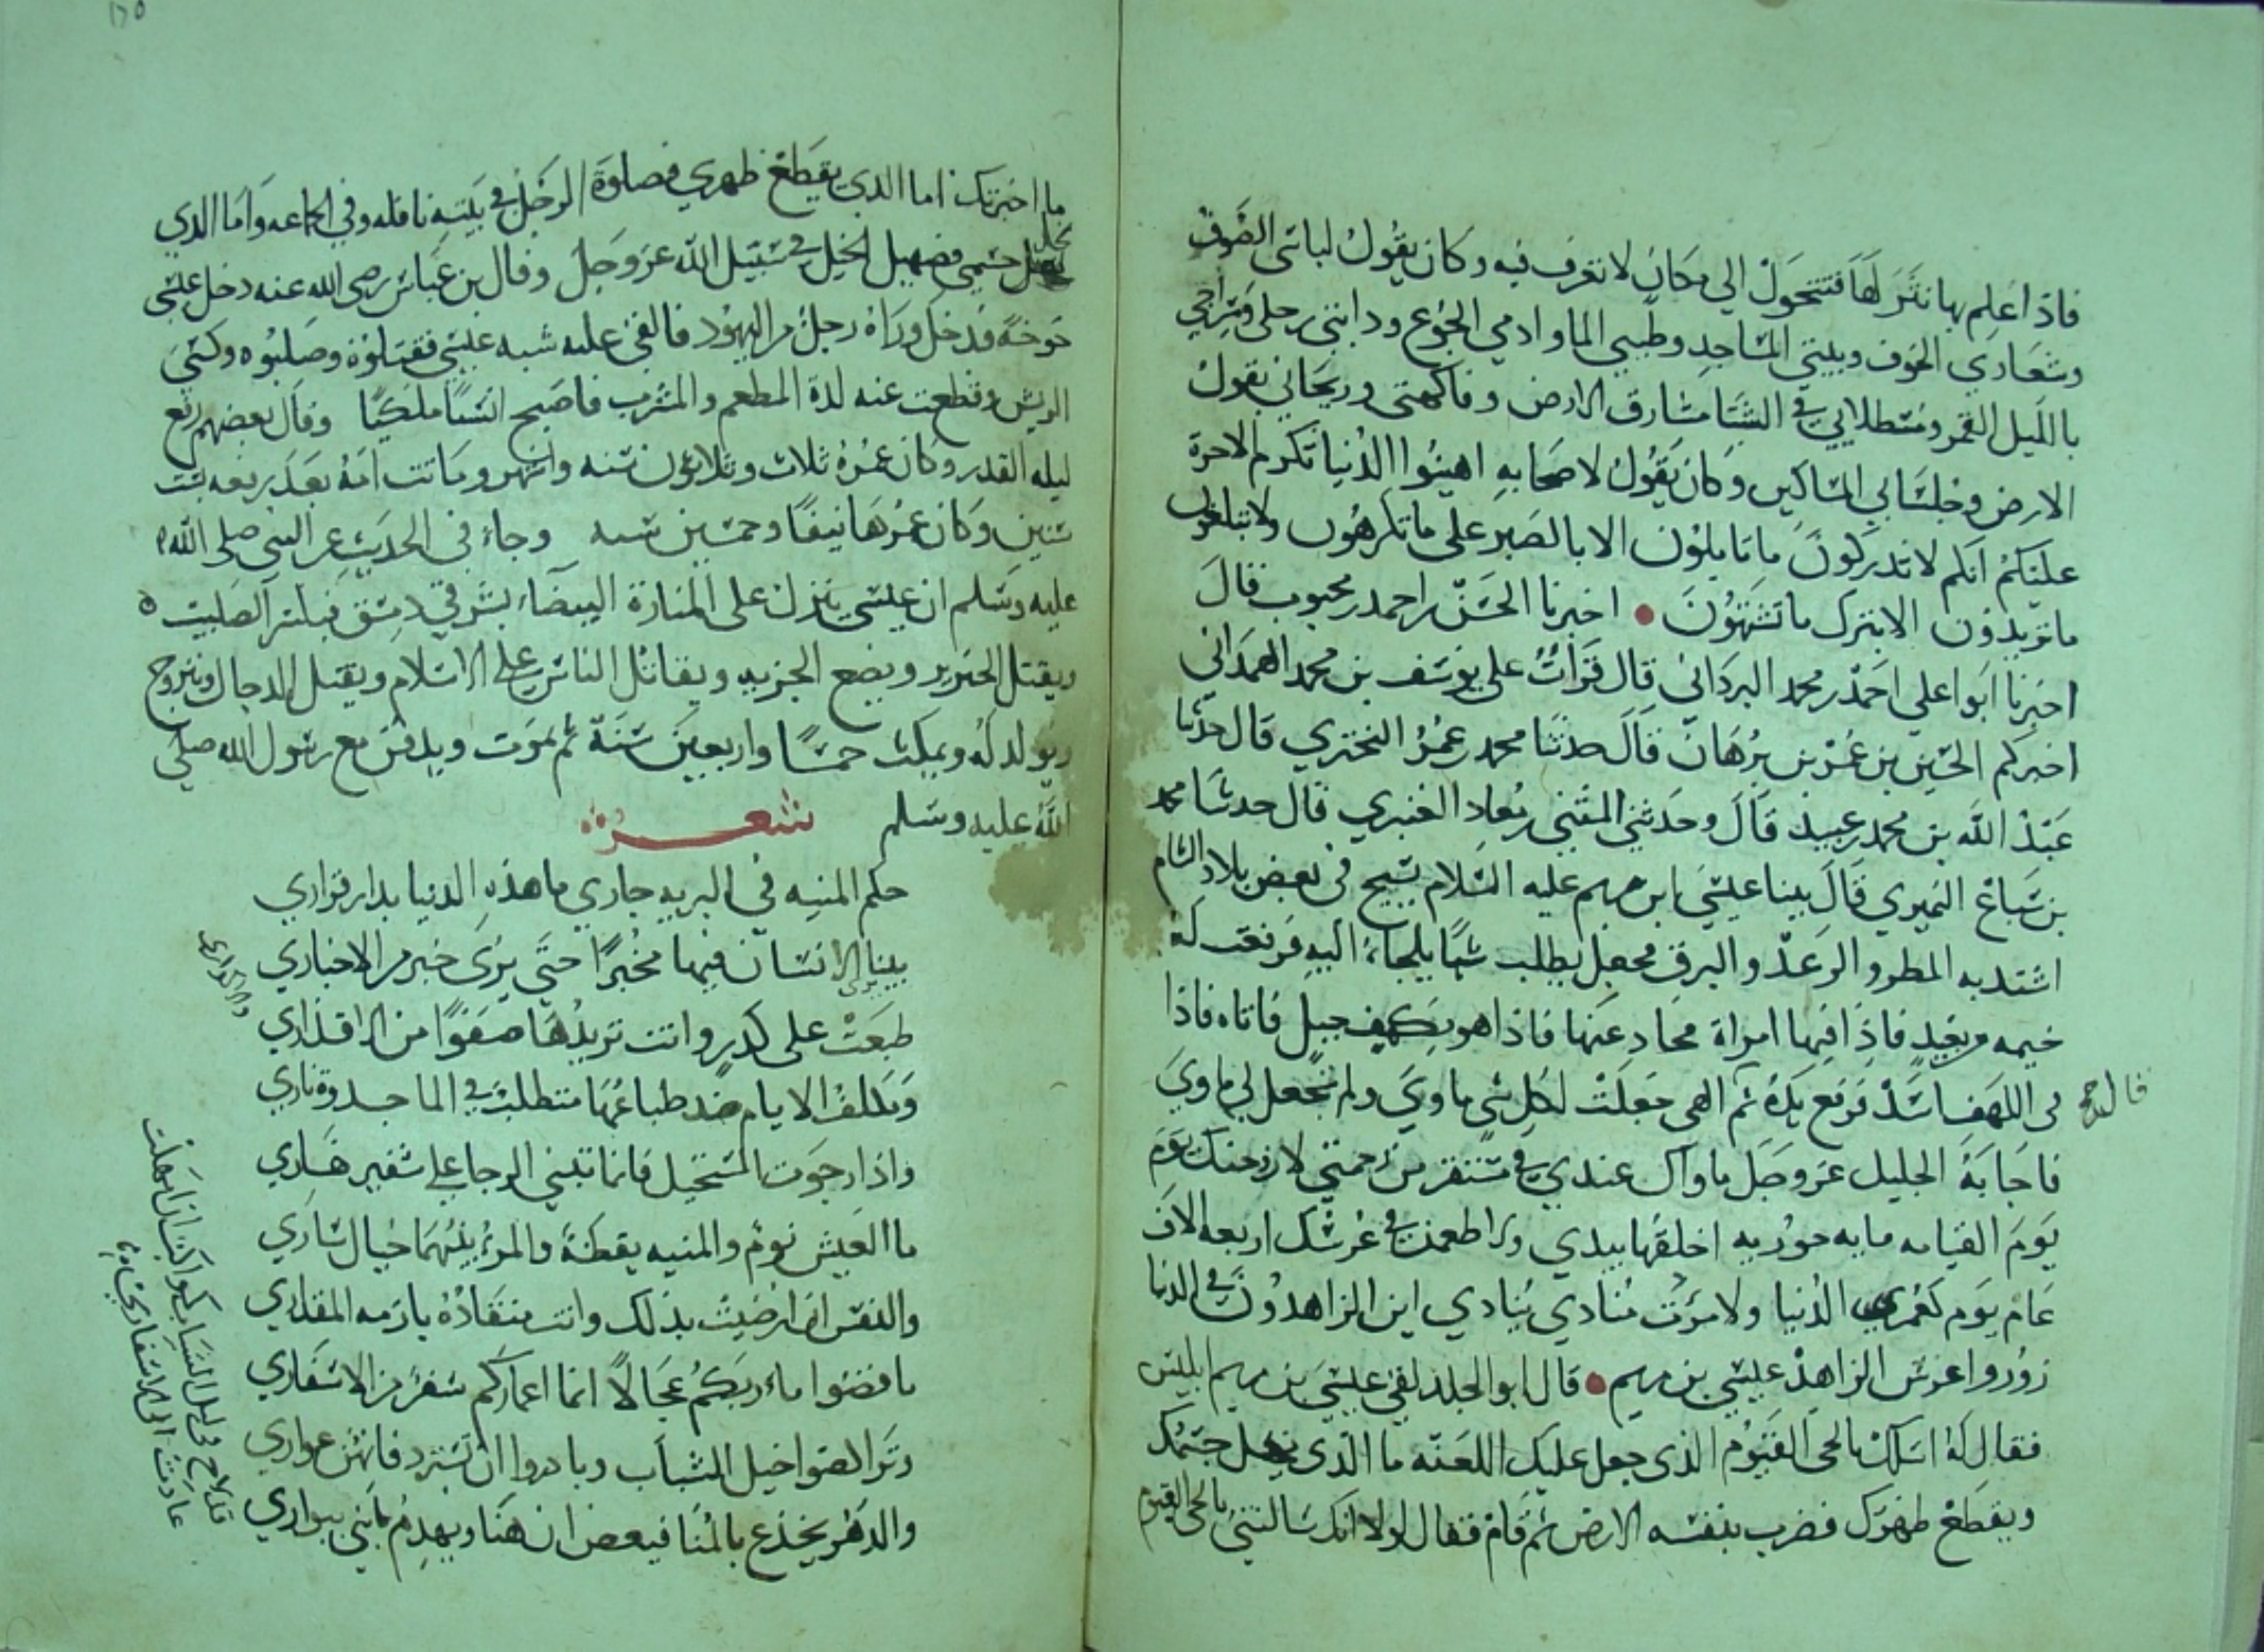 فاذا علم بها نثرلها فتتحول الي مكان لا تعرف فيه وكان يقول لباسي الصوف
وشعاري الخوف وبيتي المساجد وطيبي الما وادمي الجوع ودابتي رجلي وسراجي
بالليل القمر ومسطلايي في الشتا مشارق الارض وفاكهتي وريحاني بقول
الارض وجلسايي المساكين وكان يقول لاصحابه اهينوا الدنيا تكرم الاخرة
عليكم انكم لا تدركون ما تاملون الا بالصبر علي ما تكرهون ولا تبلغون
ما تريدون الا بترك ما تشتهون اخبرنا الحسن بن احمد بن محبوب قال
اخبرنا ابوا علي احمد بن محمد البرداني قال قرات علي يوسف بن محمد الهمداني
اخبركم الحسين بن عمر بن برهان قال حدثنا محمد بن عمرو البختري قال حدثنا
عبد الله بن محمد بن عبيد قال وحدثني المثني بن معاد العنبري قال حدثنا محمد
بن سباع النميري قال بينا عيسي ابن مريم عليه السلام يسيح في بعض بلاد الشام
اشتد به المطر والرعد والبرق فجعل يطلب شيا يلجاء اليه فرفعت له
خيمه من بعيد فاذا فيها امراة فحاد عنها فاذا هو بكهف جبل فاتاه فاذا
في الكهف اسد فرفع يده ثم الهي جعلت لكل شي ماوي ولم تجعل لي ماوي
قال
فاجابه الجليل عز وجل ماواك عندي في مستقر من رحمتي لازوجنك يوم
يوم القيامه مايه حوريه اخلقها بيدي ولاطعمن في عرسك اربعه الاف
عام يوم كعمر الدنيا ولامرت منادي ينادي اين الزاهدون في الدنيا
زوروا عرس الزاهد عيسي بن مريم قال ابو الجلد لقي عيسي بن مريم ابليس
فقال له اسلك بالحي القيوم الذي جعل عليك اللعنه ما الذي ينحل جسمك
ويقطع ظهرك فضرب بنفسه الارض ثم قام فقال لولا انك سالتني بالحي القيوم
ما اخبرتك اما الذي يقطع ظهري فصلوة الرجل في بيته نافله وفي الجماعه واما الذي
ينحل جسمي فصهيل الخيل في سبيل الله عز وجل وقال بن عباس رضي الله عنه دخل عيسي
خوخة فدخل وراه رجل من اليهود فالقي عليه شبه عيسي فقتلوه وصلبوه وكسي
الريش وقطعت عنه لدة المطعم والمشرب فاصبح انسيا ملكيا وقال بعضهم رفع
ليله القدر وكان عمره ثلاث وثلاثون سنه واشهر وماتت امه بعد رفعه بست
سنين وكان عمرها نيفا وخمسين سنه وجاء في الحديث عن النبي صلي الله
عليه وسلم ان عيسي ينزل علي المنارة البيضاء بشرقي دمشق فيكسر الصليب
ويقتل الخنزير ويضع الجزيه ويقاتل الناس علي الاسلام ويقتل الدجال ويتزوج
ويولد له ويمكث خمسا واربعين سنة ثم يموت ويدفن مع رسول الله صلي
الله عليه وسلم شعر
حكم المنيه في البريه جاري ما هذه الدنيا بدار قراري
بينا الانسان فيها مخبرا حتي يري خبر من الاخباري
يري
طبعت علي كدر وانت تريدها صفوا من الاقذاري
والاكداري
ومكلف الايام ضد طباعها متطلب في الما جدوة ناري
واذا رجوت المستحيل فانما تبني الرجا علي شفير هاري
ما العيش نوم والمنيه يقظة والمرء بينهما خيال ساري
والنفس ان رضيت بذلك وانت منقادة بازمه المقداري
فاقضوا ماربكم عجالا انما اعماركم سفر من الاسفاري
وتراكضوا خيل الشباب وبادروا ان تسترد فانهن عواري
والدهر يخدع بالمنا فيعض ان هنا ويهدم ما بني ببواري
قد لاح في ليل الشباب كواكب ان امهلت
عادت الي الاسفار